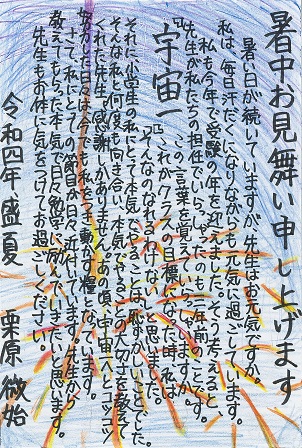 暑中お見舞い申し上げます
暑い日が続いていますが、先生はお元気ですか。
私は、毎日汗だくになりながらも元気に過ごしています。
私も今年で受験の年を迎えました。そう考えると、
先生が私たちの担任でいらっしゃったのも六年前のことです。
『宇宙一』この言葉を覚えていらっしゃいますか。
これがクラスの目標になった時、私は
「そんなのなれるわけない」と思いました。
それに小学生の私にとって本気でやることは恥ずかしいことでした。
そんな私と何度も向き合い、本気でやることの大切さを教えて
くれた先生に感謝しかありません。あの頃、宇宙一へとコツコツ
努力した日々は今でも私をつき動かす糧となっています。
さて、私にとっての節目が日々近付いています。先生から
教えてもらった本気で日々勉学に励んでいきたいと思います。
先生もお体に気をつけてお過ごしください。
令和四年 盛夏 栗原 徴始